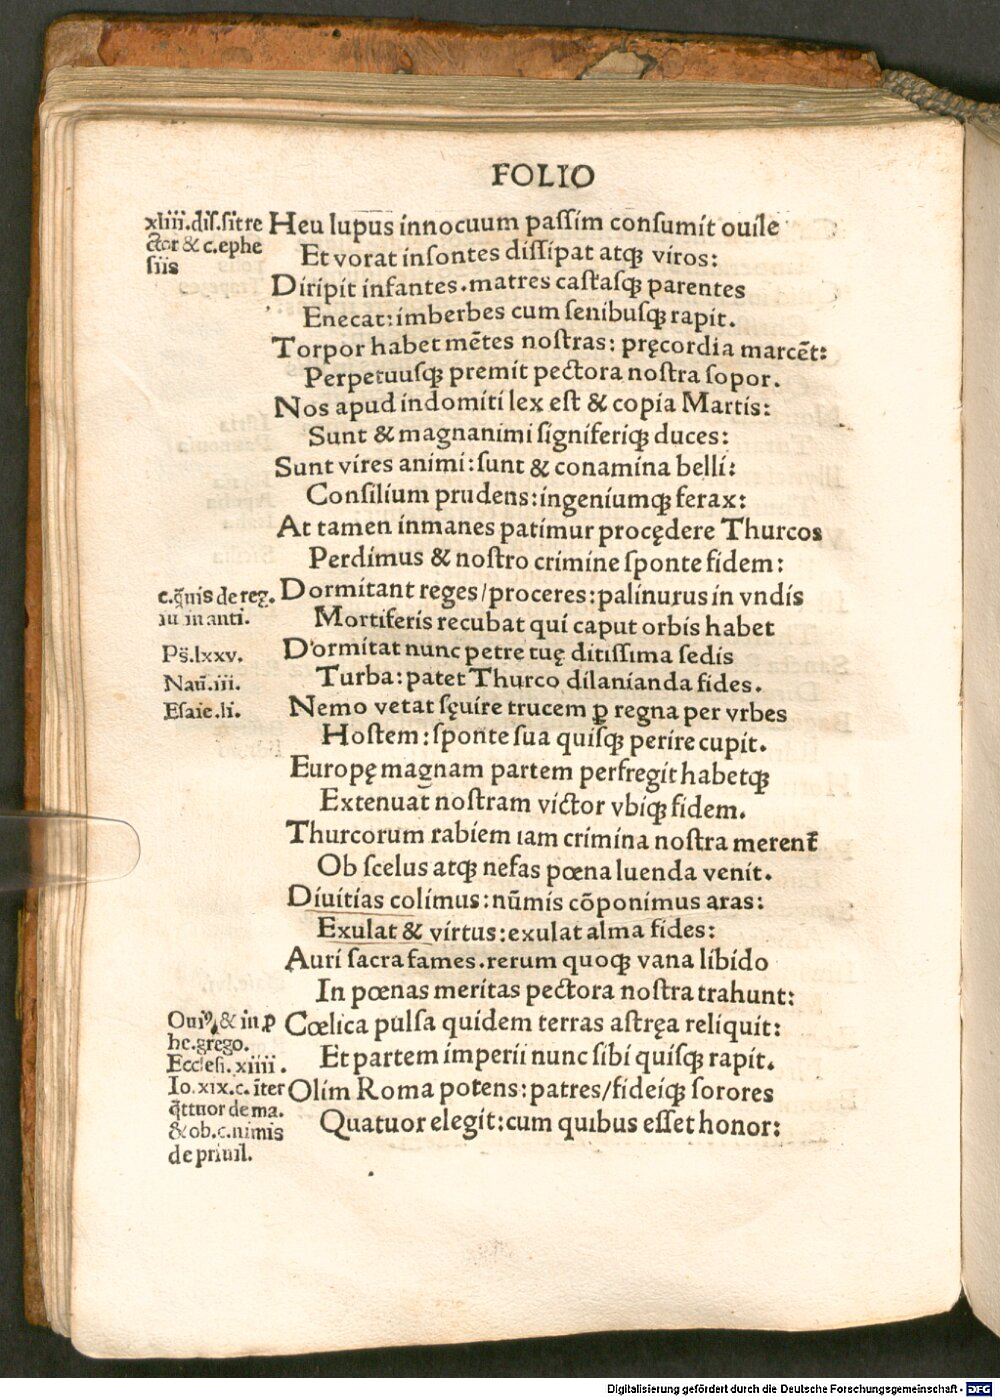 FOLIO
xliii.diſ.ſit re
ctor & c.ephe
ſiis
Heu lupus innocuum paſſim conſumit ouile
Et vorat inſontes diſſipat atqꝫ viros:
Diripit infantes.matres caſtaſqꝫ parentes
Enecat:imberbes cum ſenibuſqꝫ rapit.
Torpor habet mētes noſtras: pręcordia marcēt:
Perpetuuſqꝫ premit pectora noſtra ſopor.
Nos apud indomiti lex eſt & copia Martis:
Sunt & magnanimi ſigniferiqꝫ duces:
Sunt vires animi:ſunt & conamina belli:
Conſilium prudens:ingeniumqꝫ ferax:
At tamen inmanes patimur procędere Thurcos
Perdimus & noſtro crimine ſponte fidem:
c.q̄uis de reg.
iu in anti.
Dormitant reges/proceres:palinurus in vndis
Mortiferis recubat qui caput orbis habet
Pṡ.lxxv.
Dormitat nunc petre tuę ditiſſima ſedis
Naū.iii.
Turba:patet Thurco dilanianda fides.
Eſaie.li.
Nemo vetat ſęuire trucem ꝑ regna per vrbes
Hoſtem:ſponte ſua quiſqꝫ perire cupit.
Europę magnam partem perfregit habetqꝫ
Extenuat noſtram victor vbiqꝫ fidem.
Thurcorum rabiem iam crimina noſtra merent᷑
Ob ſcelus atqꝫ nefas pœna luenda venit.
Diuitias colimus:nūmis cōponimus aras:
Exulat & virtus:exulat alma fides:
Auri ſacra fames.rerum quoqꝫ vana libido
In pœnas meritas pectora noſtra trahunt:
Ouiꝰ, & in ꝓ
he.grego.
Eccleſi.xiiii.
Io.xix.c.īter
q̄ttuor de ma.
& ob.c.nimis
de priuil.
Cœlica pulſa quidem terras aſtręa reliquit:
Et partem imperii nunc ſibi quiſqꝫ rapit.
Olim Roma potens:patres/fideiqꝫ ſorores
Quatuor elegit:cum quibus eſſet honor:
Digitalisierung gefördert durch die Deutsche Forschungsgemeinschaft - DFG